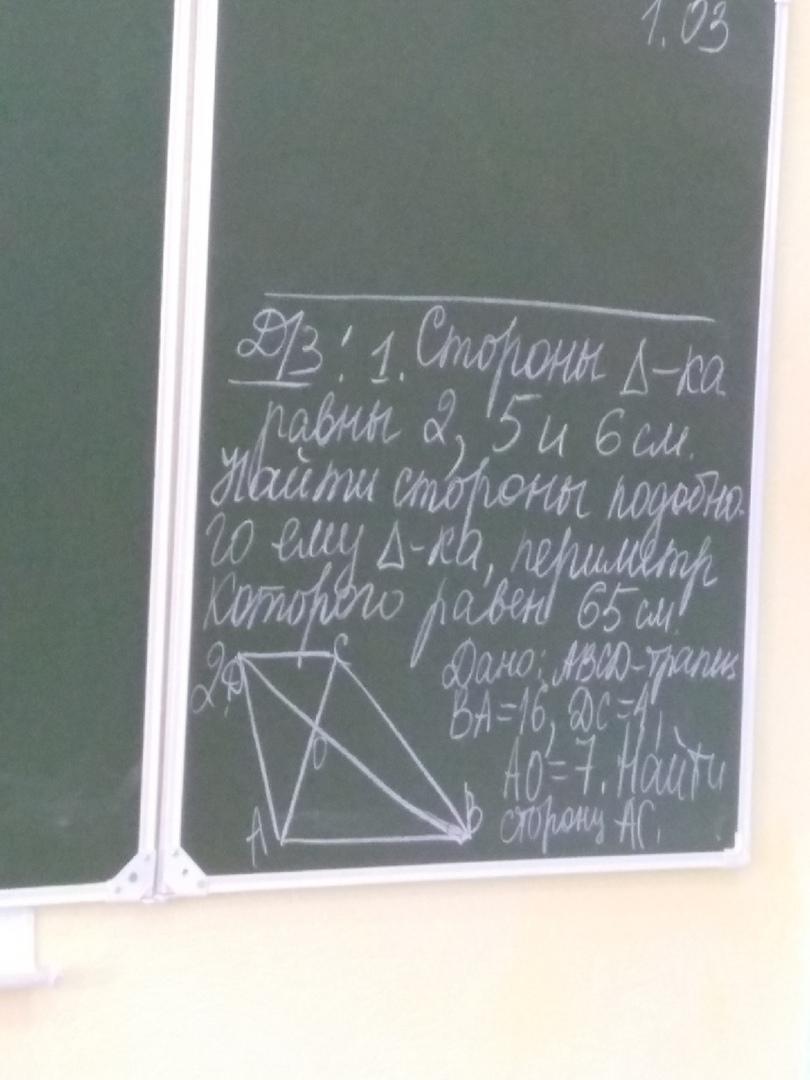 1.03
Д/З: 1. Стороны Δ-ка
равны 2, 5 и 6 см.
Найти стороны подобно-
го ему Δ-ка, периметр
которого равен 65 см.
2. D C Дано: ABCD-трапец
BA=16, DC=4,
O AO=7. Найти
A B сторону AC.